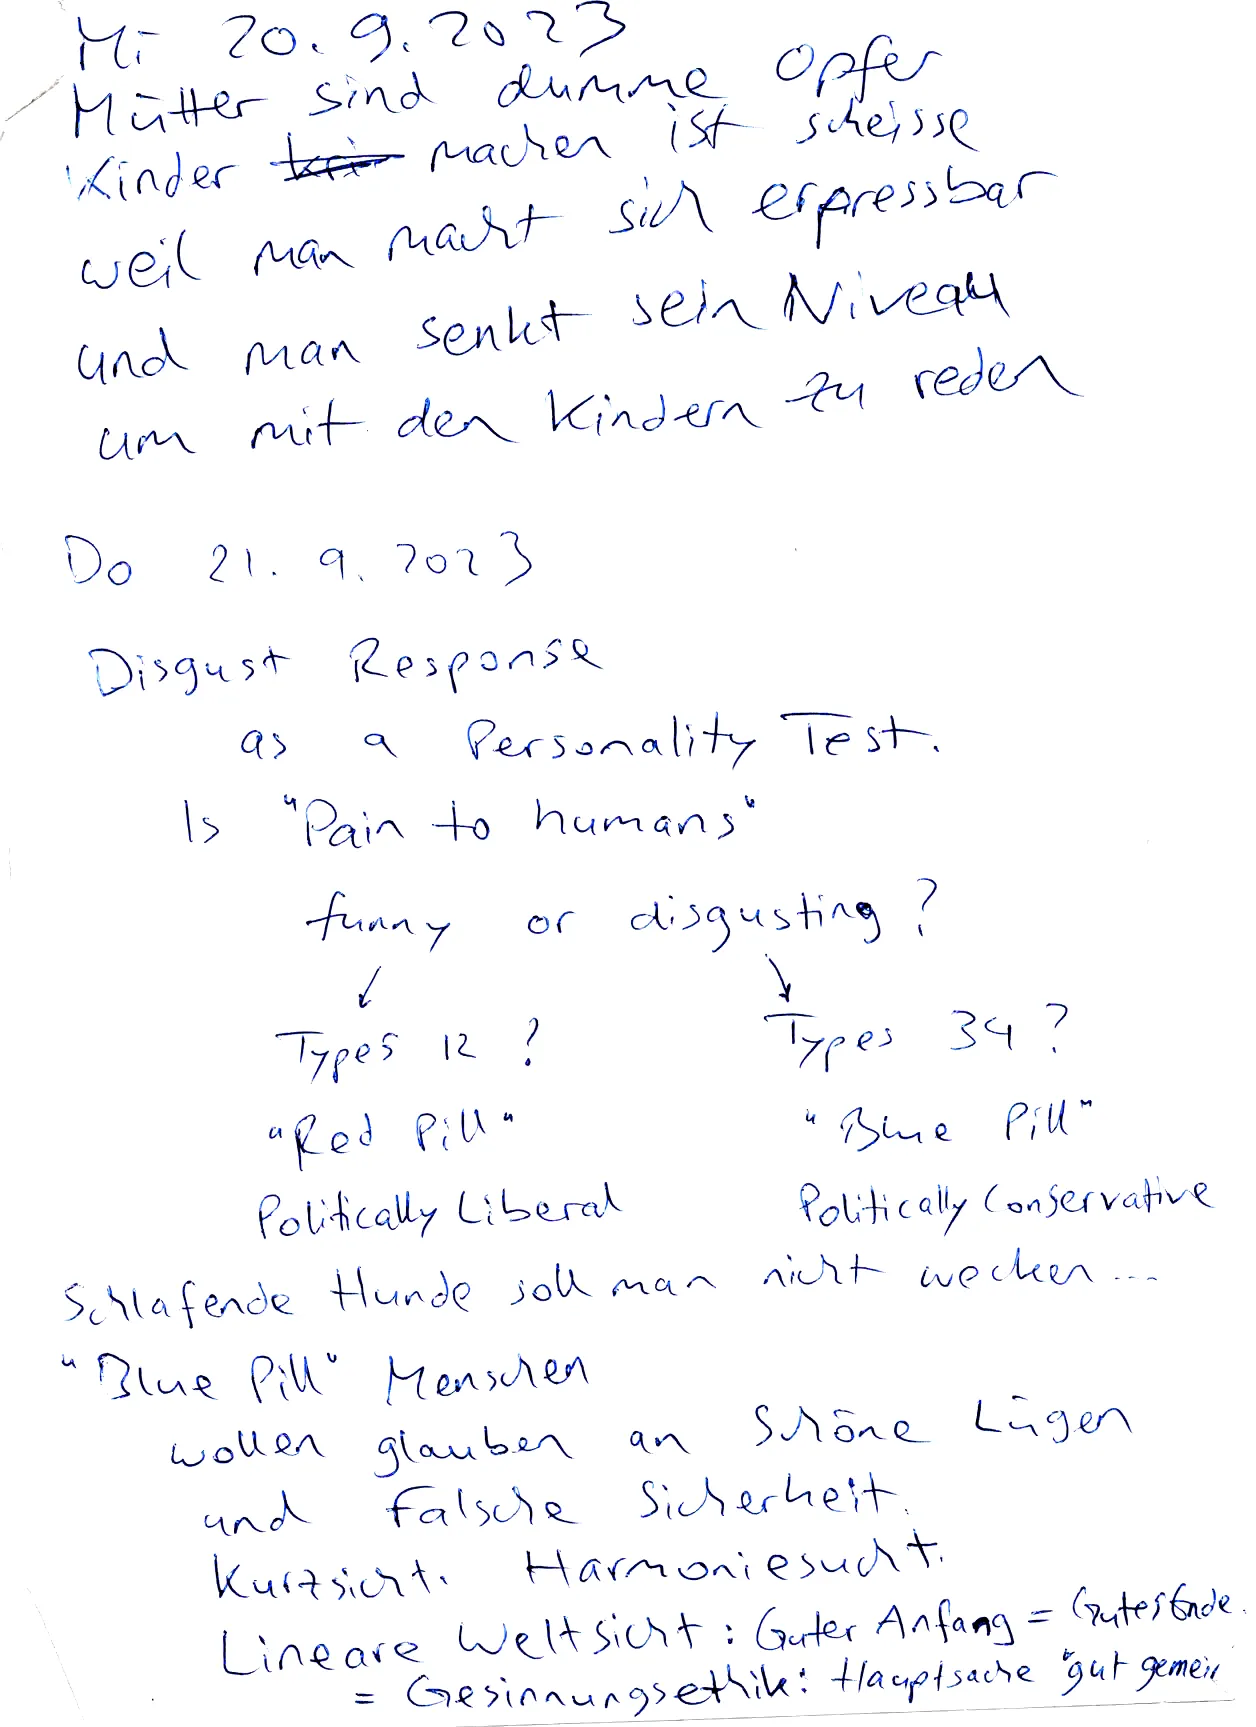 Mi 20.9.2023
Mütter sind dumme Opfer
Kinder kri machen ist scheisse
weil man macht sich erpressbar
und man senkt sein Niveau
um mit den Kindern zu reden
Do 21.9.2023
Disgust Response
as a Personality Test.
Is "Pain to humans"
funny or disgusting?
↙ ↘
Types 12 ? Types 34 ?
"Red Pill" "Blue Pill"
Politically Liberal Politically Conservative
Schlafende Hunde soll man nicht wecken...
"Blue Pill" Menschen
wollen glauben an schöne Lügen
und Falsche Sicherheit.
Kurzsicht. Harmoniesucht.
Lineare Weltsicht: Guter Anfang = Gutes Ende.
= Gesinnungsethik: Hauptsache "gut gemein